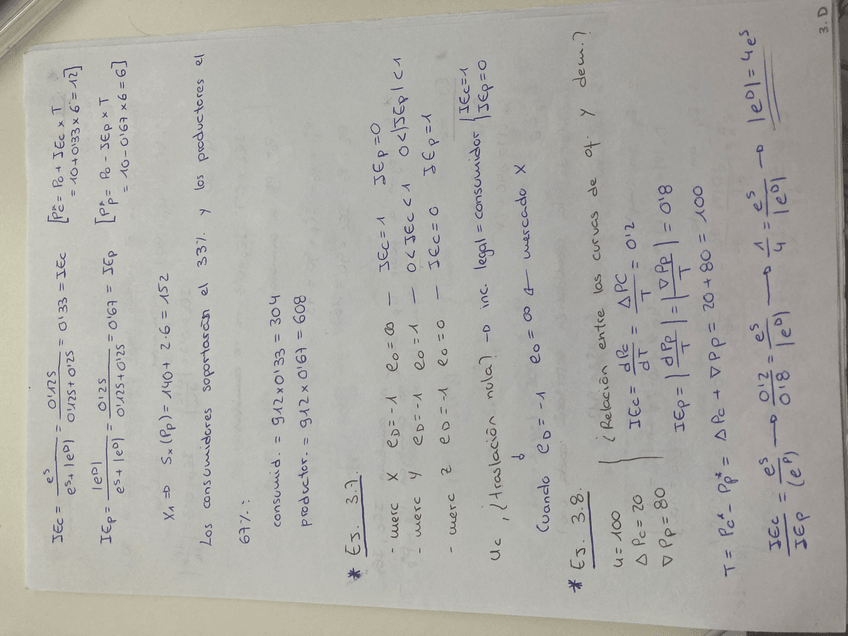 IEc = e^s / (e^s + |e^D|) = 0'125 / (0'125 + 0'25) = 0'33 = IEc [P*c = P0 + IEc × T
= 10 + 0'33 × 6 = 12]
IEp = |e^D| / (e^s + |e^D|) = 0'25 / (0'125 + 0'25) = 0'67 = IEp [P*p = P0 - IEp × T
= 10 - 0'67 × 6 = 6]
X1 => Sx(Pp) = 140 + 2·6 = 152
Los consumidores soportarán el 33% y los productores el
67%:
consumid. = 912 × 0'33 = 304
productor. = 912 × 0'67 = 608
* EJ. 3.7.
- merc X eD = -1 eo = ∞ — IEc = 1 IEp = 0
- merc y eD = -1 eo = 1 — 0 < IEc < 1 0 < |IEp| < 1
- merc z eD = -1 eo = 0 — IEc = 0 IEp = 1
Uc, ¿traslación nula? → inc. legal = consumidor { IEc = 1
IEp = 0
↓
Cuando eD = -1 eo = ∞ ← mercado X
* EJ. 3.8.
u = 100 ¿Relación entre las curvas de of. y dem.?
Δ Pc = 20 IEc = dPc / dT = ΔPC / T = 0'2
∇ Pp = 80 IEp = |dPp / dT| = |∇Pp / T| = 0'8
T = Pc* - Pp* = ΔPc + ∇Pp = 20 + 80 = 100
IEc / IEp = e^s / (e^D) → 0'2 / 0'8 = e^s / |e^D| → 1/4 = e^s / |e^D| → |e^D| = 4e^s
3.D